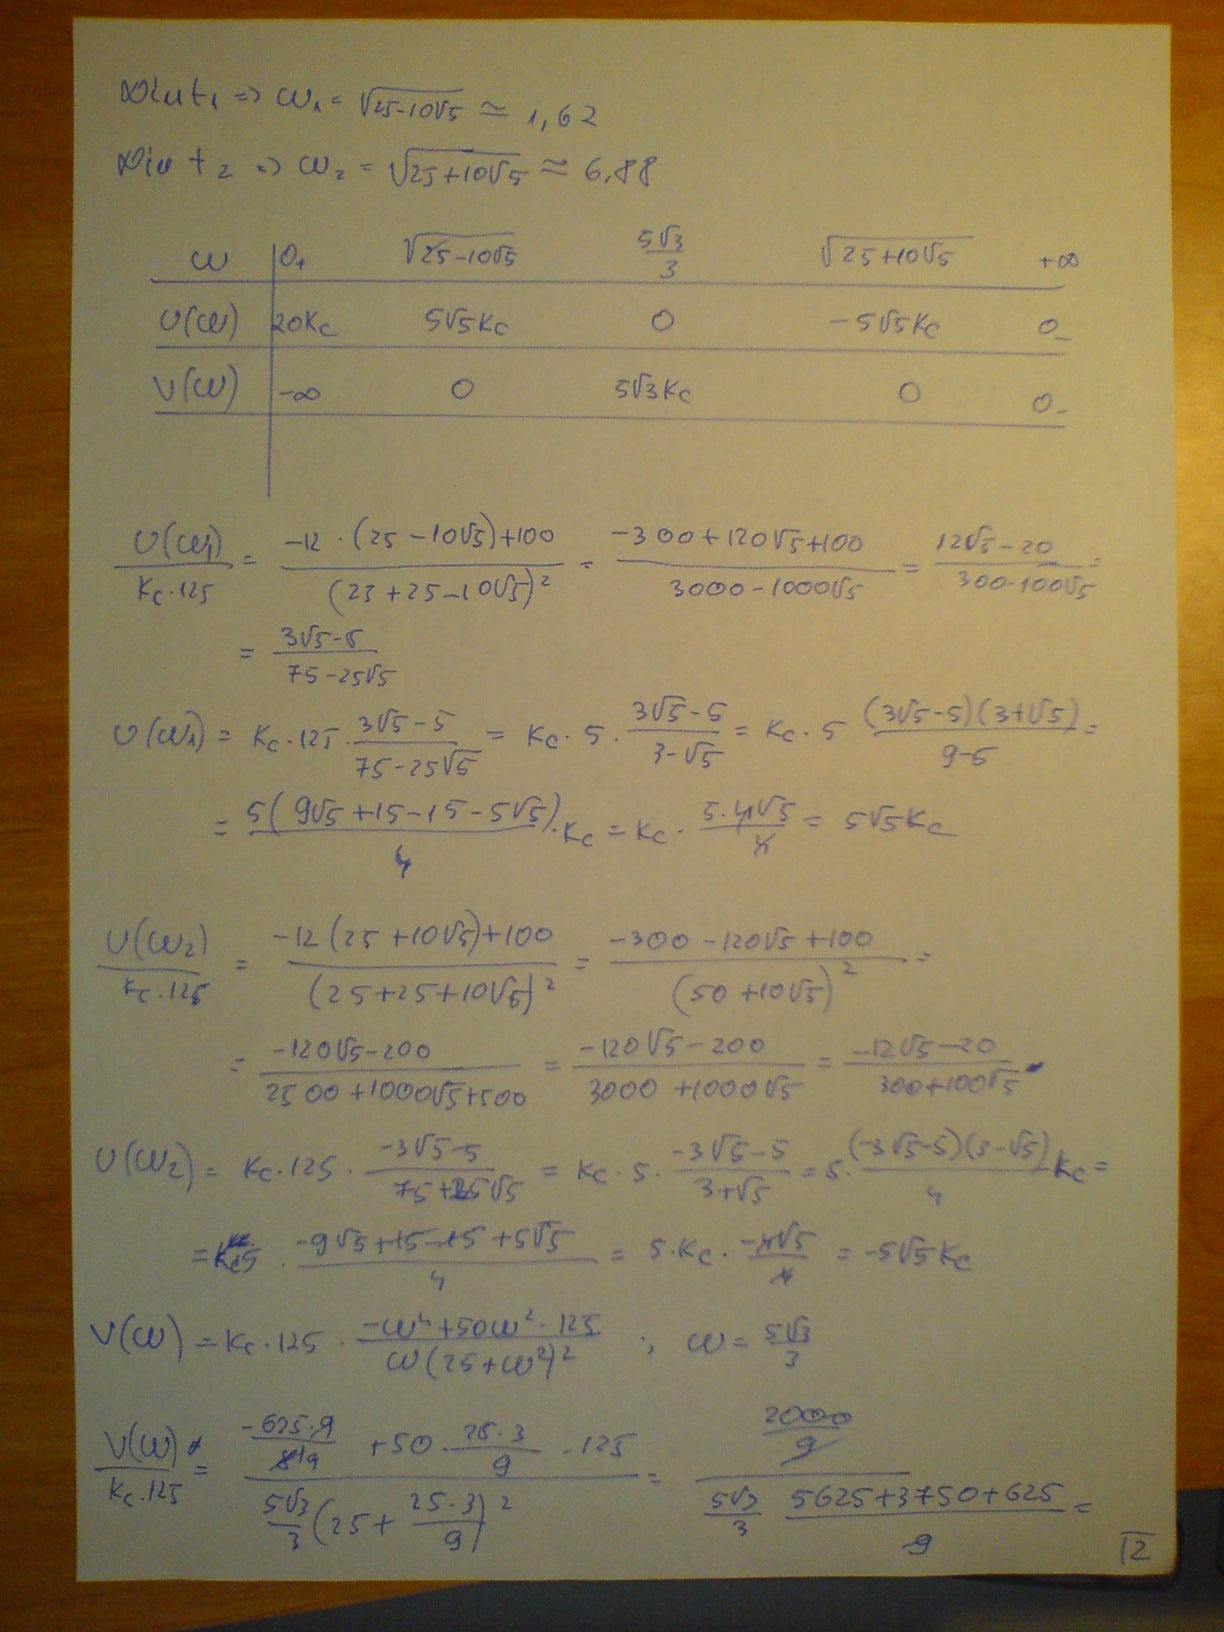 dla t₁ => ω₁ = √(25-10√5) ≃ 1,62
dla t₂ => ω₂ = √(25+10√5) ≃ 6,88
ω | 0₊ √(25-10√5) 5√3/3 √(25+10√5) +∞
U(ω) | 20Kc 5√5Kc 0 -5√5Kc 0₋
V(ω) | -∞ 0 5√3Kc 0 0₋
U(ω₁)/(Kc·125) = (-12·(25-10√5)+100)/(25+25-10√5)² = (-300+120√5+100)/(3000-1000√5) = (12√5-20)/(300-100√5) =
= (3√5-5)/(75-25√5)
U(ω₁) = Kc·125·(3√5-5)/(75-25√5) = Kc·5·(3√5-5)/(3-√5) = Kc·5 (3√5-5)(3+√5)/(9-5) =
= 5(9√5+15-15-5√5)/4·Kc = Kc·(5·4√5)/4 = 5√5Kc
U(ω₂)/(Kc·125) = (-12(25+10√5)+100)/(25+25+10√5)² = (-300-120√5+100)/(50+10√5)² =
= (-120√5-200)/(2500+1000√5+500) = (-120√5-200)/(3000+1000√5) = (-12√5-20)/(300+100√5)
U(ω₂) = Kc·125·(-3√5-5)/(75+25√5) = Kc·5·(-3√5-5)/(3+√5) = 5·(-3√5-5)(3-√5)/4 Kc =
= Kc5·(-9√5+15-15+5√5)/4 = 5·Kc·(-4√5)/4 = -5√5Kc
V(ω) = Kc·125·(-ω⁴+50ω²-125)/(ω(25+ω²)²) ; ω = 5√3/3
V(ω)/(Kc·125) = ((-625·9)/(819) + 50·(25·3)/9 - 125)/((5√3/3)(25+(25·3)/9)²) = (2000/9)/((5√3/3)·(5625+3750+625)/9) =
12